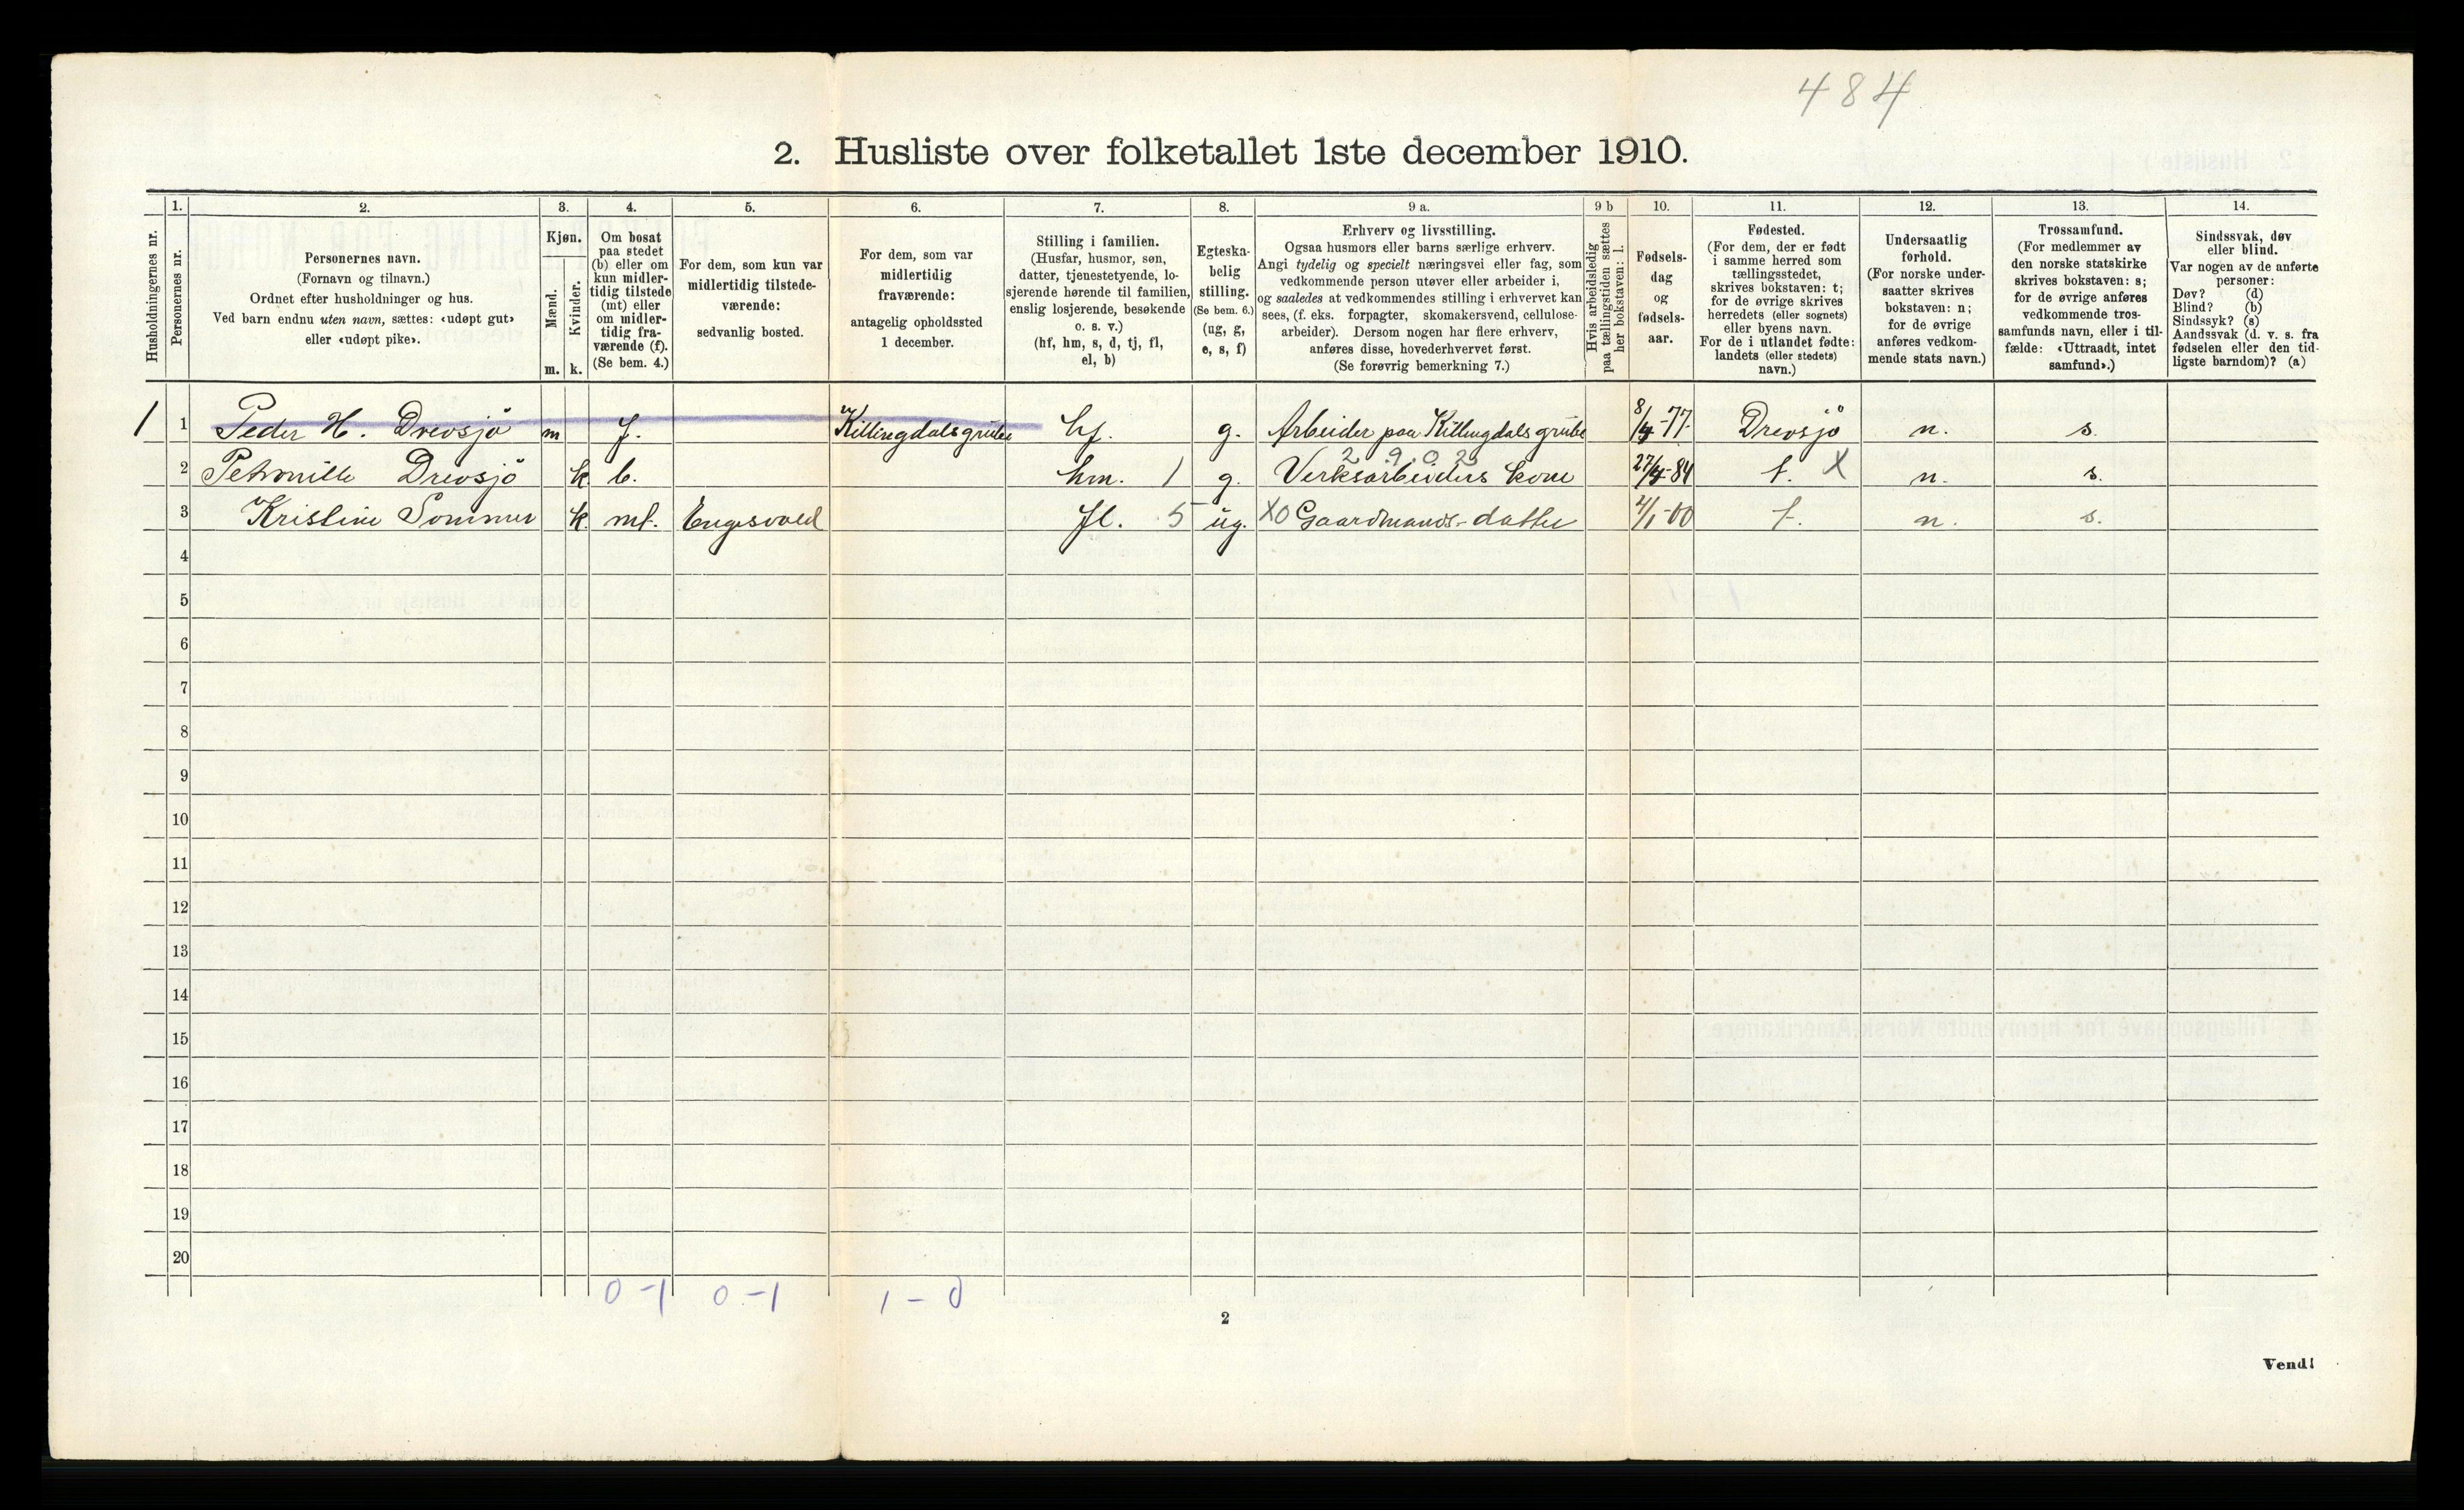 484
2. Husliste over folketallet 1ste december 1910.
Husholdningernes nr.
1.
Personernes nr.
2.
Personernes navn.
(Fornavn og tilnavn.)
Ordnet efter husholdninger og hus.
Ved barn endnu uten navn, sættes: «udøpt gut»
eller «udøpt pike».
3.
Kjøn.
Mænd.
m.
Kvinder.
k.
4.
Om bosat
paa stedet
(b) eller om
kun midler-
tidig tilstede
(mt) eller
om midler-
tidig fra-
værende (f).
(Se bem. 4.)
5.
For dem, som kun var
midlertidig tilstede-
værende:
sedvanlig bosted.
6.
For dem, som var
midlertidig
fraværende:
antagelig opholdssted
1 december.
7.
Stilling i familien.
(Husfar, husmor, søn,
datter, tjenestetyende, lo-
sjerende hørende til familien,
enslig losjerende, besøkende
o. s. v.)
(hf, hm, s, d, tj, fl,
el, b)
8.
Egteska-
belig
stilling.
(Se bem. 6.)
(ug, g,
e, s, f)
9 a.
Erhverv og livsstilling.
Ogsaa husmors eller barns særlige erhverv.
Angi tydelig og specielt næringsvei eller fag, som
vedkommende person utøver eller arbeider i,
og saaledes at vedkommendes stilling i erhvervet kan
sees, (f. eks. forpagter, skomakersvend, cellulose-
arbeider). Dersom nogen har flere erhverv,
anføres disse, hovederhvervet først.
(Se forøvrig bemerkning 7.)
9 b
Hvis arbeidsledig
paa tællingstiden sættes
her bokstaven: l.
10.
Fødsels-
dag
og
fødsels-
aar.
11.
Fødested.
(For dem, der er født
i samme herred som
tællingsstedet,
skrives bokstaven: t;
for de øvrige skrives
herredets (eller sognets)
eller byens navn.
For de i utlandet fødte:
landets (eller stedets)
navn.)
12.
Undersaatlig
forhold.
(For norske under-
saatter skrives
bokstaven: n;
for de øvrige
anføres vedkom-
mende stats navn.)
13.
Trossamfund.
(For medlemmer av
den norske statskirke
skrives bokstaven: s;
for de øvrige anføres
vedkommende tros-
samfunds navn, eller i til-
fælde: «Uttraadt, intet
samfund».)
14.
Sindssvak, døv
eller blind.
Var nogen av de anførte
personer:
Døv? (d)
Blind? (b)
Sindssyk? (s)
Aandssvak (d. v. s. fra
fødselen eller den tid-
ligste barndom)? (a)
1 1 Peder H. Drevsjö m f. Killingdalsgrube hf. g. Arbeider paa Killingdals grube 8/4-77 Drevsjö n. s.
2 9 0 2
2 Petronille Drevsjö k b. hm. 1 g. Verksarbeiders kone 27/4-84 t. X n. s.
3 Kristine Sommer k. mt. Engesvold fl. 5 ug. XO Gaardmands-datter /1-00 t. n. s.
4
5
6
7
8
9
10
11
12
13
14
15
16
17
18
19
20
0-1 0-1 1-0
2
Vend!